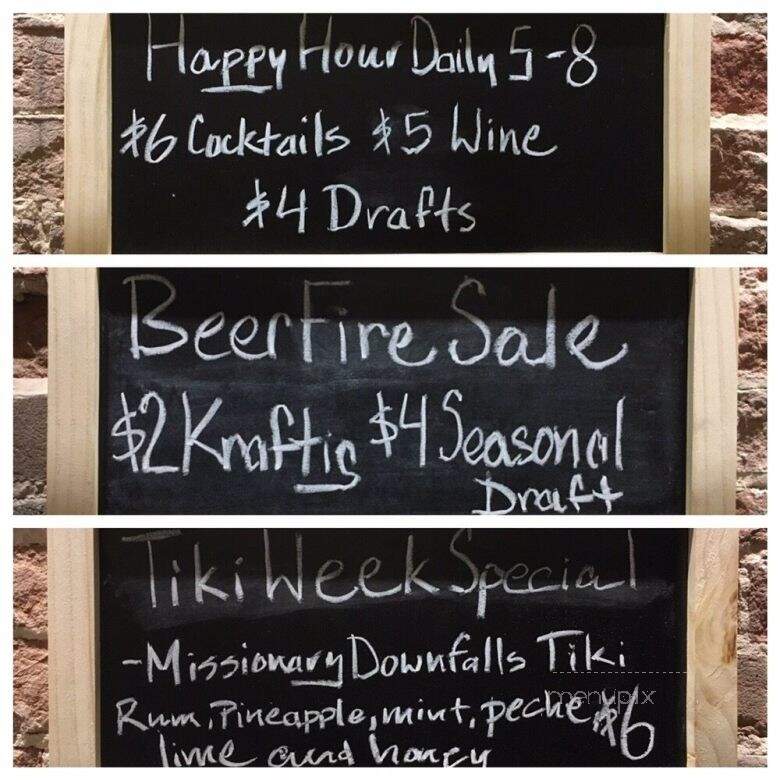 Happy Hour Daily 5-8
$6 Cocktails $5 Wine
$4 Drafts
Beer Fire Sale
$2 Kraftig $4 Seasonal
Draft
Tiki Week Special
-Missionary Downfalls Tiki
menupix
Rum, Pineapple, mint, peche $6
lime and honey